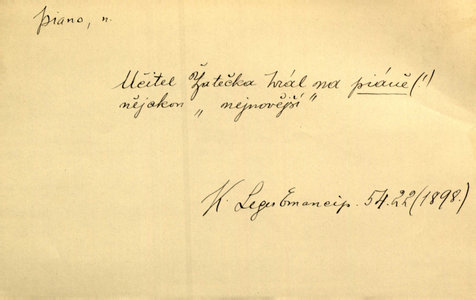 piano, n.
Učitel Žutečka hrál na piáně (!)
nějakou „ nejnovější “
K. Leger Emancip. 54.22 (1898.)